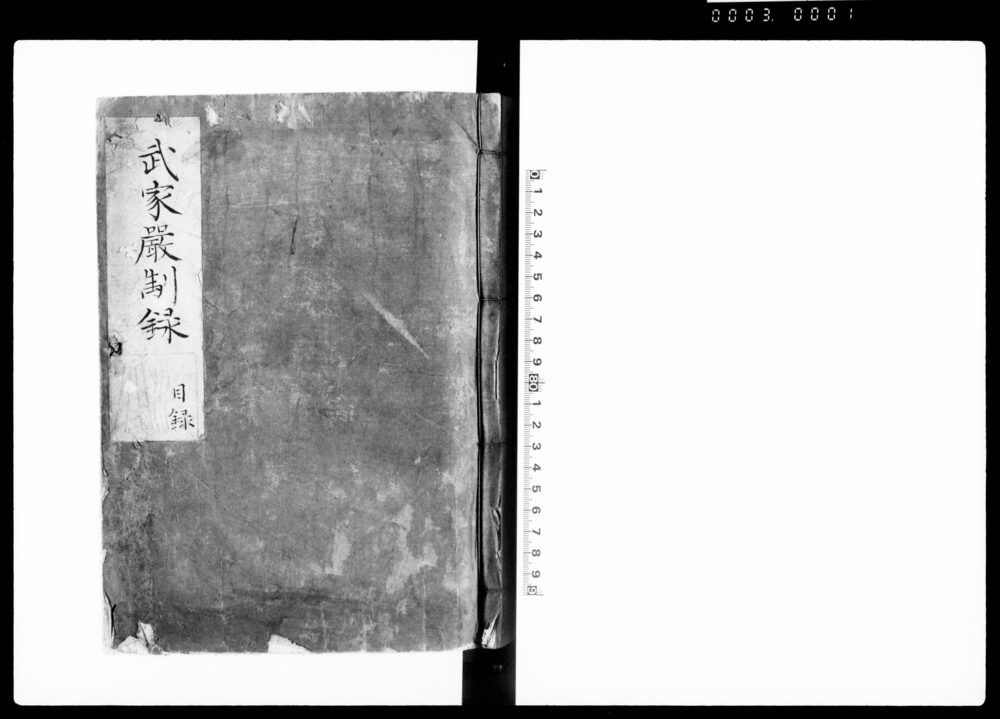 0003. 0001
武家嚴制録
目録
0 1 2 3 4 5 6 7 8 9 10 1 2 3 4 5 6 7 8 9